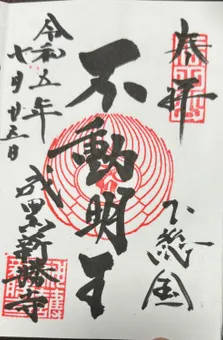 奉拝
下總国
不動明王
成田山新勝寺
令和五年
十月廿五日